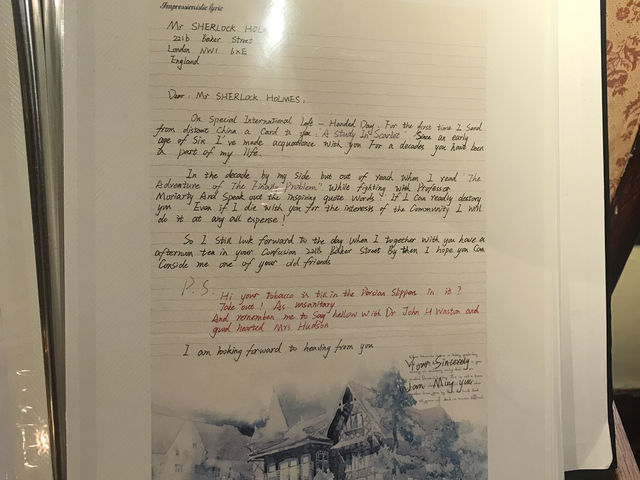 Impressionistic lyric
Mr SHERLOCK HOLM
221b Baker Street
London NW1 6XE
England
Dear. Mr SHERLOCK HOLMES,
On Special International Left-Handed Day. For the first time I Send
from distant China a Card to you. "A Study In Scarlet" Since an early
age of Six I've made acquaintance with you For a decades you have been
a part of my life.
In the decade by my side but out of reach when I read "The
Adventure of The Final Problem" While fighting with Professor
Moriarty And Speak out the inspiring quote Words: If I Can readily destory
you Even if I die with you for the interests of the Community I will
do it at any all expense!
So I Still look forward To the day when I together with you have a
afternoon tea in your Confusion 221B Baker Street By then I hope you Can
Conside me one of your old friends
P.S.
Hi your tobacco is till in the Persian Slippers in it?
Take out! As unsanitary
And remember me to Say hellow with Dr John H Waston and
good hearted Mrs. Hudson
I am looking forward to heaving from you
Your Sincerely
Ming yuan